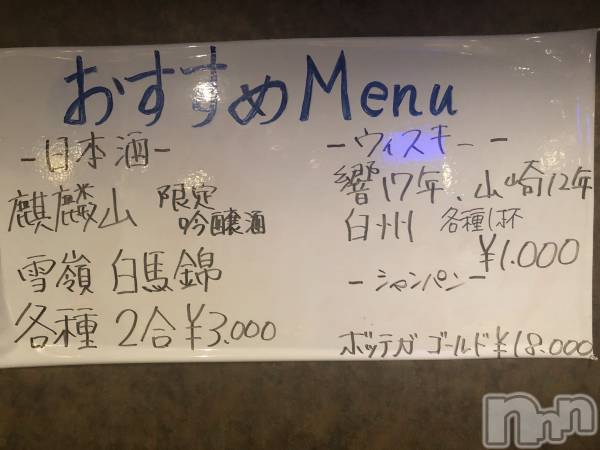 おすすめMenu
-日本酒-
麒麟山 限定
吟醸酒
雪嶺 白馬錦
各種 2合¥3.000
-ウィスキー-
響17年、山崎12年
白州 各種1杯
¥1.000
-シャンパン-
ボッテガ ゴールド¥18.000
nnn